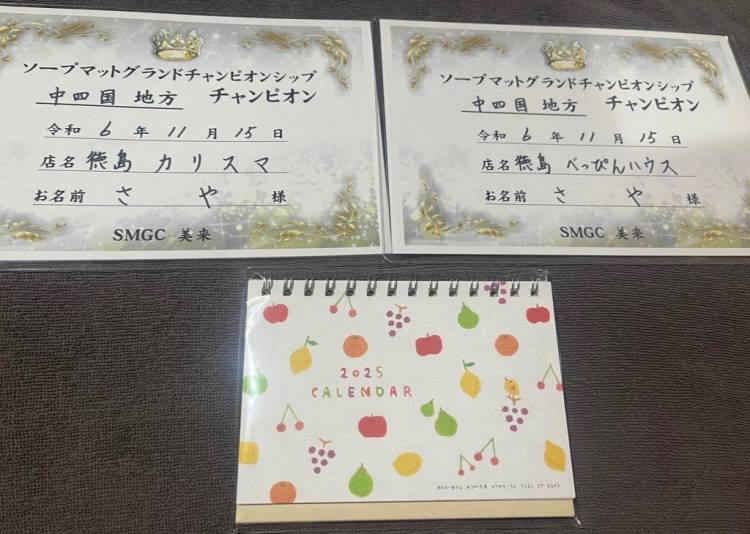 ソープマットグランドチャンピオンシップ
中四国 地方 チャンピオン
令和 6 年 11 月 15 日
店名 徳島 カリスマ
お名前 さ や 様
SMGC 美来
ソープマットグランドチャンピオンシップ
中四国 地方 チャンピオン
令和 6 年 11 月 15 日
店名 徳島 べっぴんハウス
お名前 さ や 様
SMGC 美来
2025
CALENDAR